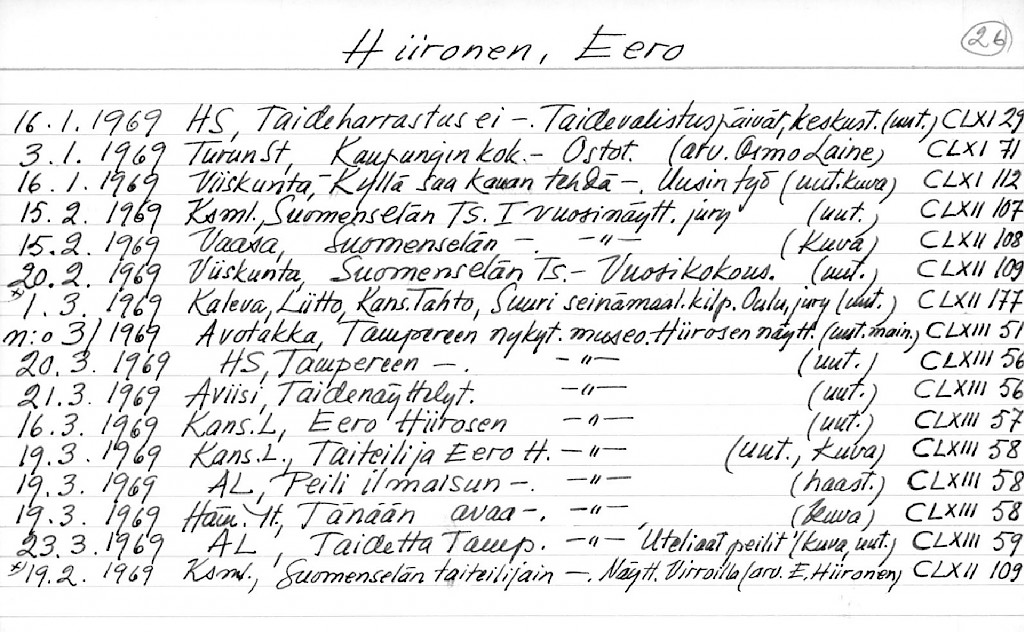 Hiironen, Eero 26
16.1.1969 HS, Taideharrastus ei –. Taidevalistuspäivät, keskust. (uut.) CLXI 29
3.1.1969 TurunSt, Kaupungin kok. – Ostot. (arv. Osmo Laine) CLXI 71
16.1.1969 Viiskunta, – Kyllä saa kauan tehdä –. Uusin työ (uut. kuva) CLXI 112
15.2.1969 Ksml., Suomenselän TS. I vuosinäytt. jury (uut.) CLXII 107
15.2.1969 Vaasa, Suomenselän –. –"– (Kuva) CLXII 108
20.2.1969 Viiskunta, Suomenselän Ts. – Vuosikokous. (uut.) CLXII 109
* 1.3.1969 Kaleva, Liitto, Kans.Tahto, Suuri seinämaal.kilp. Oulu, jury (uut.) CLXII 177
n:o 3/1969 Avotakka, Tampereen nykyt. museo. Hiirosen näytt. (uut. main.) CLXIII 51
20.3.1969 HS, Tampereen –. –"– (uut.) CLXIII 56
21.3.1969 Aviisi, Taidenäyttelyt. –"– (uut.) CLXIII 56
16.3.1969 Kans.L, Eero Hiirosen –"– (uut.) CLXIII 57
19.3.1969 Kans.L., Taiteilija Eero H. –"– (uut., kuva) CLXIII 58
19.3.1969 AL, Peili ilmaisun –. –"– (haast.) CLXIII 58
19.3.1969 Häm. Yt, Tänään avaa –. –"– (kuva) CLXIII 58
23.3.1969 AL, Taidetta Tamp. –"– Uteliaat peilit (kuva, uut.) CLXIII 59
* 19.2.1969 Ksml., Suomenselän taiteilijain –. Näytt. Virroilla (arv. E. Hiironen) CLXII 109